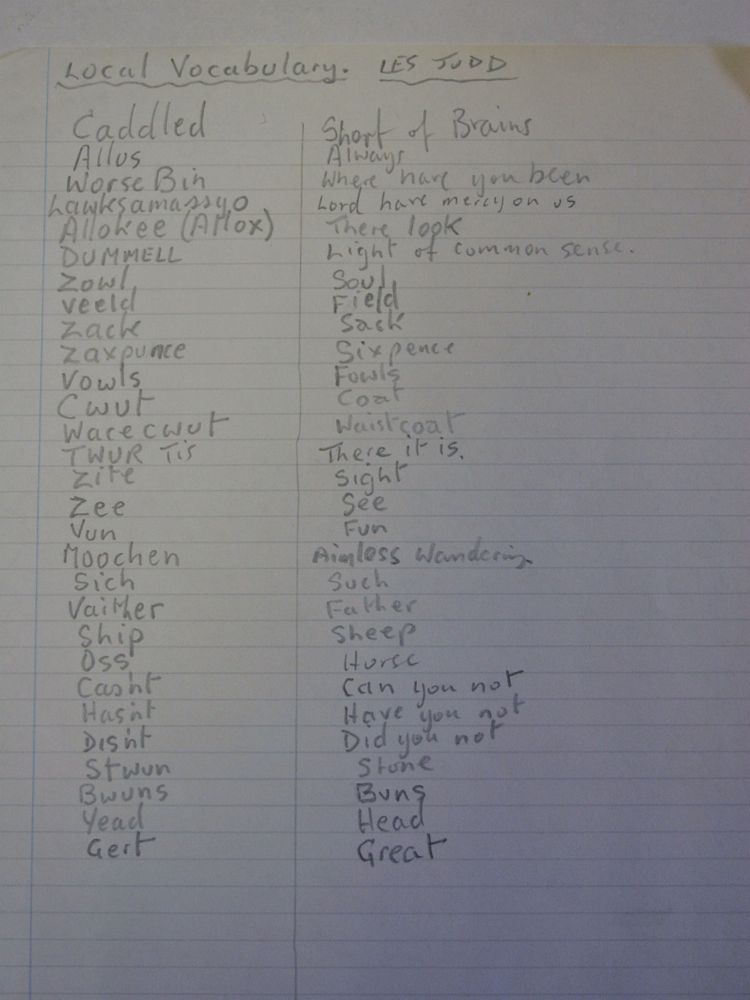 Local Vocabulary. LES JUDD
Caddled Short of Brains
Allus Always
Worse Bin Where have you been
Lawksamassyo Lord have mercy on us
Allokee (Allox) There look
DUMMELL Light of common sense.
Zowl Soul
Veeld Field
Zack Sack
Zaxpunce Sixpence
Vowls Fowls
Cwut Coat
Wacecwut Waistcoat
TWUR Tis There it is.
Zite Sight
Zee See
Vun Fun
Moochen Aimless Wandering
Sich Such
Vaither Father
Ship Sheep
Oss Horse
Cas'nt Can you not
Has'nt Have you not
Dis'nt Did you not
Stwun Stone
Bwuns Buns
Yead Head
Gert Great